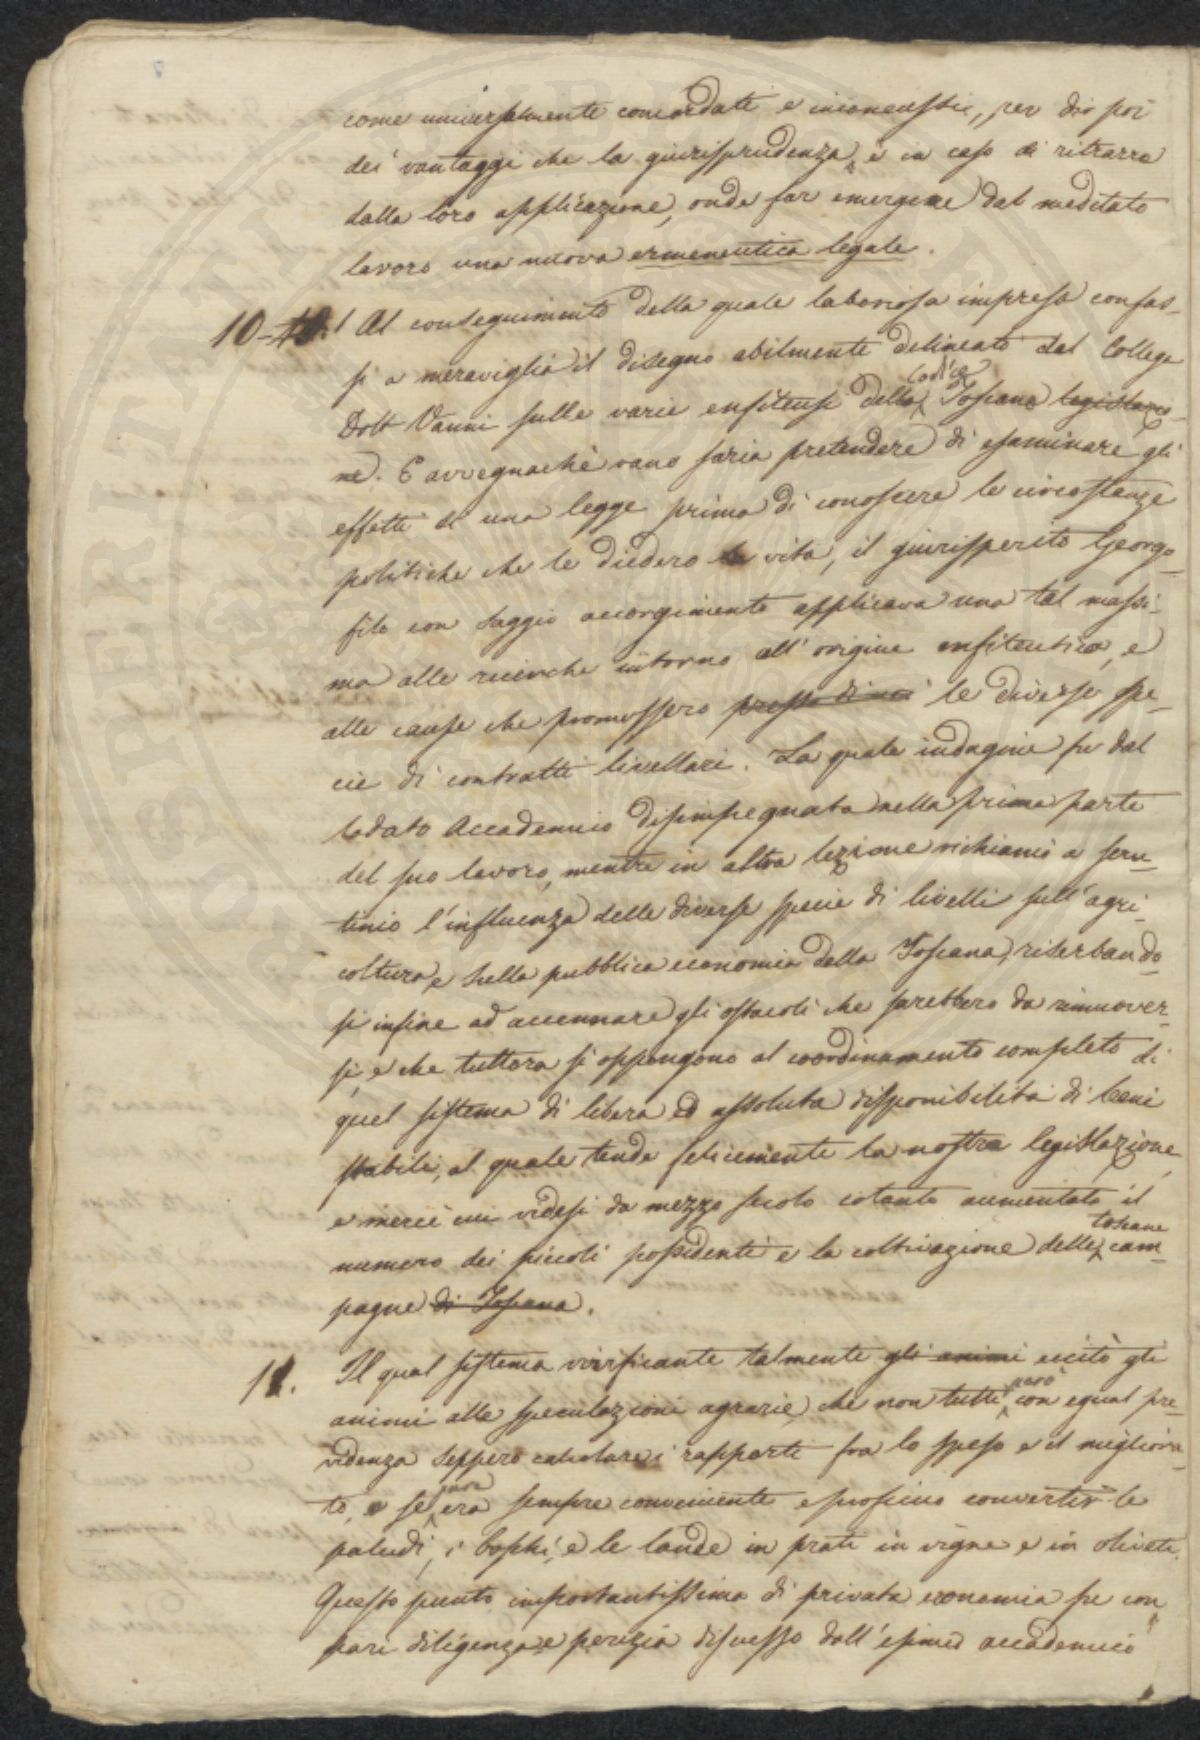 come universalmente concordati e inconcussi, per dir poi
dei vantaggi che la giurisprudenza è in caso di ritrarre
dalla loro applicazione, onde far emergere dal meditato
lavoro una nuova ermeneutica legale.
10 Al conseguimento della quale laboriosa impresa confas-
si a meraviglia il disegno abilmente delineato dal Collega
Codice
Dott Vanni sulle varie enfiteusi della Toscana legislazio-
ne. E avvegnachè vano saria pretendere di esaminare gli
effetti di una legge prima di conoscere le circostanze
politiche che le diedero la vita, il giurisperito Georgo-
filo con saggio accorgimento applicava una tal massi-
ma alle ricerche intorno all'origine enfiteutica, e
alle cause che promossero presso di noi le diverse spe-
cie di contratti livellari. La quale indagine fu dal
lodato Accademico disimpegnata nella prima parte
del suo lavoro, mentre in altra lezione richiamò a scru-
tinio l'influenza delle diverse specie di livelli sull'agri-
coltura, e sulla pubblica economia della Toscana, riserbando-
si infine ad accennare gli ostacoli che sarebbero da rimuover-
si, e che tuttora si oppongono al coordinamento completo di
quel sistema di libera ed assoluta disponibilità di beni
stabili, al quale tende felicemente la nostra legislazione,
e mercè cui videsi da mezzo secolo cotanto aumentato il
toscane
numero dei piccoli possidenti e la coltivazione delle cam-
pagne di Toscana.
11. Il qual sistema vivificante talmente gli animi eccitò gli
però
animi alle speculazioni agrarie, che non tutti con egual pre-
videnza seppero calcolare i rapporti fra lo speso e il migliora-
to, e se era sempre conveniente e proficuo convertir le
paludi, i boschi, e le lande in prati in vigne e in oliveti.
Questo punto importantissimo di privata economia fu con
pari diligenza e perizia discusso dall'esimio accademico